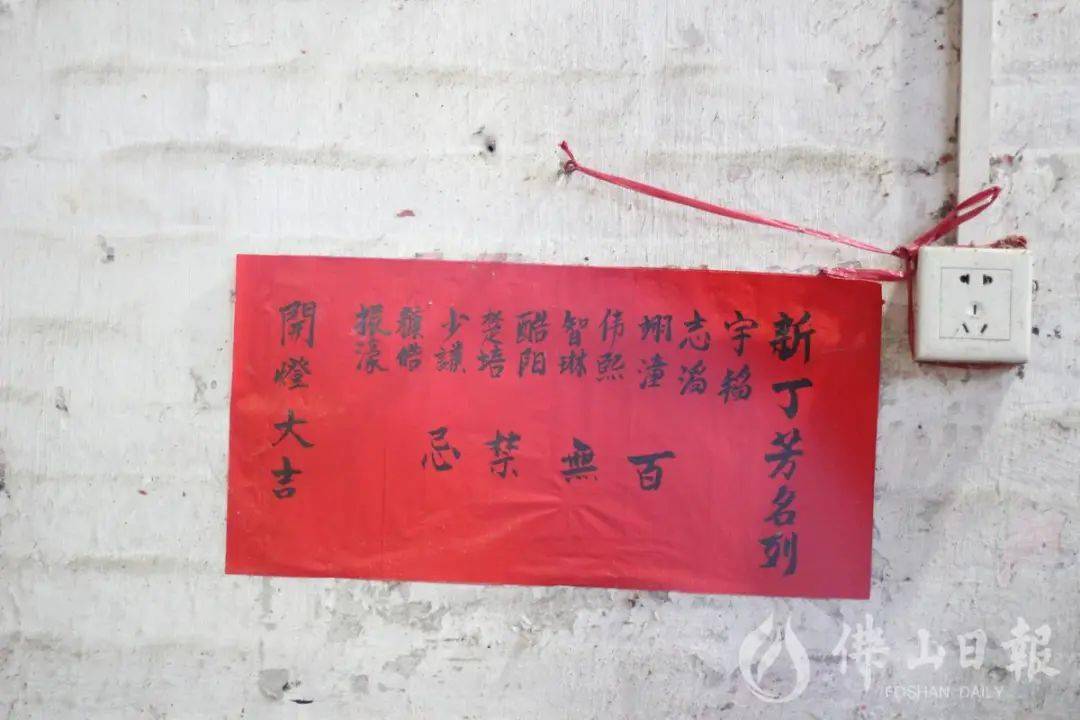 新丁芳名列
宇
志滔
潼
伟熙
智琳
酷阳
楚培
少謙
皓
振濠
百無禁忌
開燈大吉
佛山日報
FOSHAN DAILY